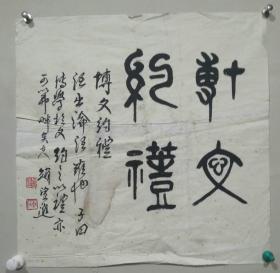 博文
約禮
博文約禮
語出論語雍也子曰
博學於文約之以禮亦
可以弗畔矣夫